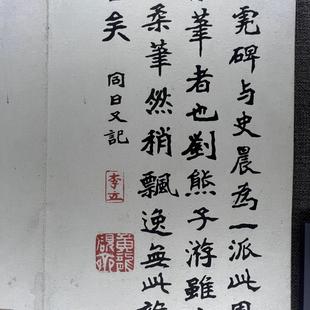 碑与史晨為一派此用
筆者也劉熊子游雖
柔筆然稍飄逸無此
矣
同日又記
李立